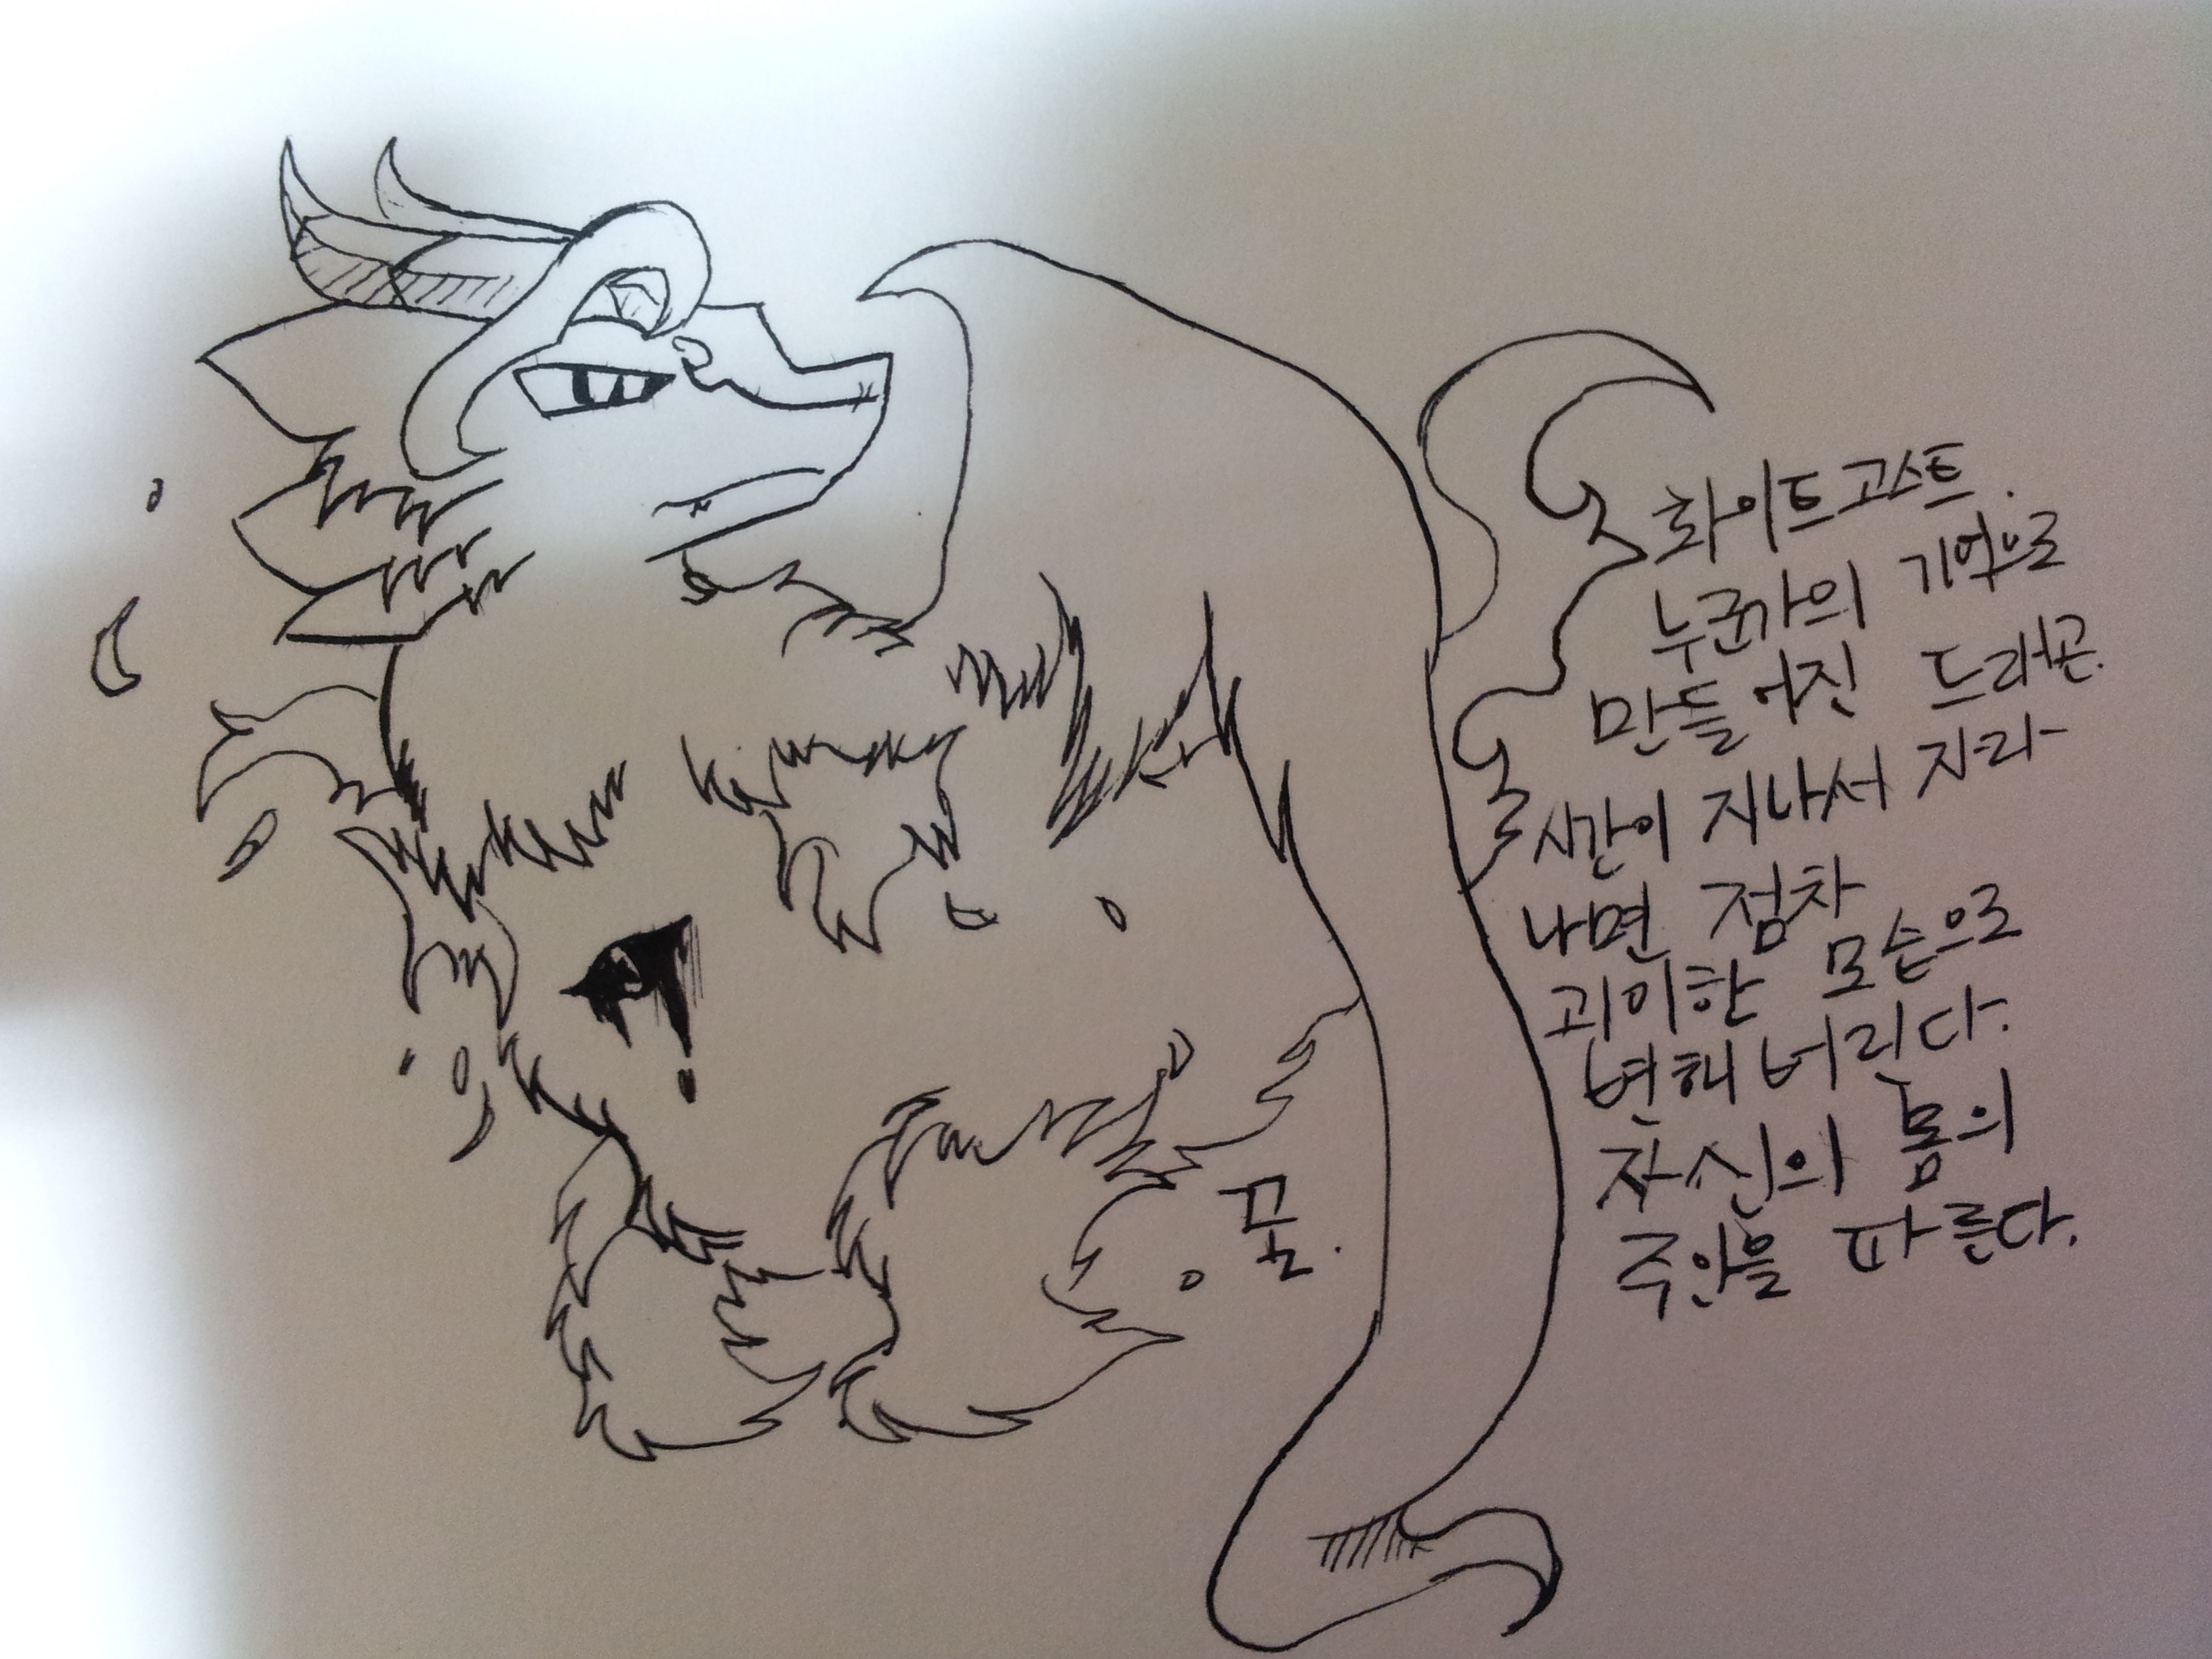 화이트고스트.
누군가의 기억으로
만들어진 드래곤.
시간이 지나서 자라
나면 점차
괴이한 모습으로
변해버린다.
자신의 몸의
주인을 따른다.
꿈.